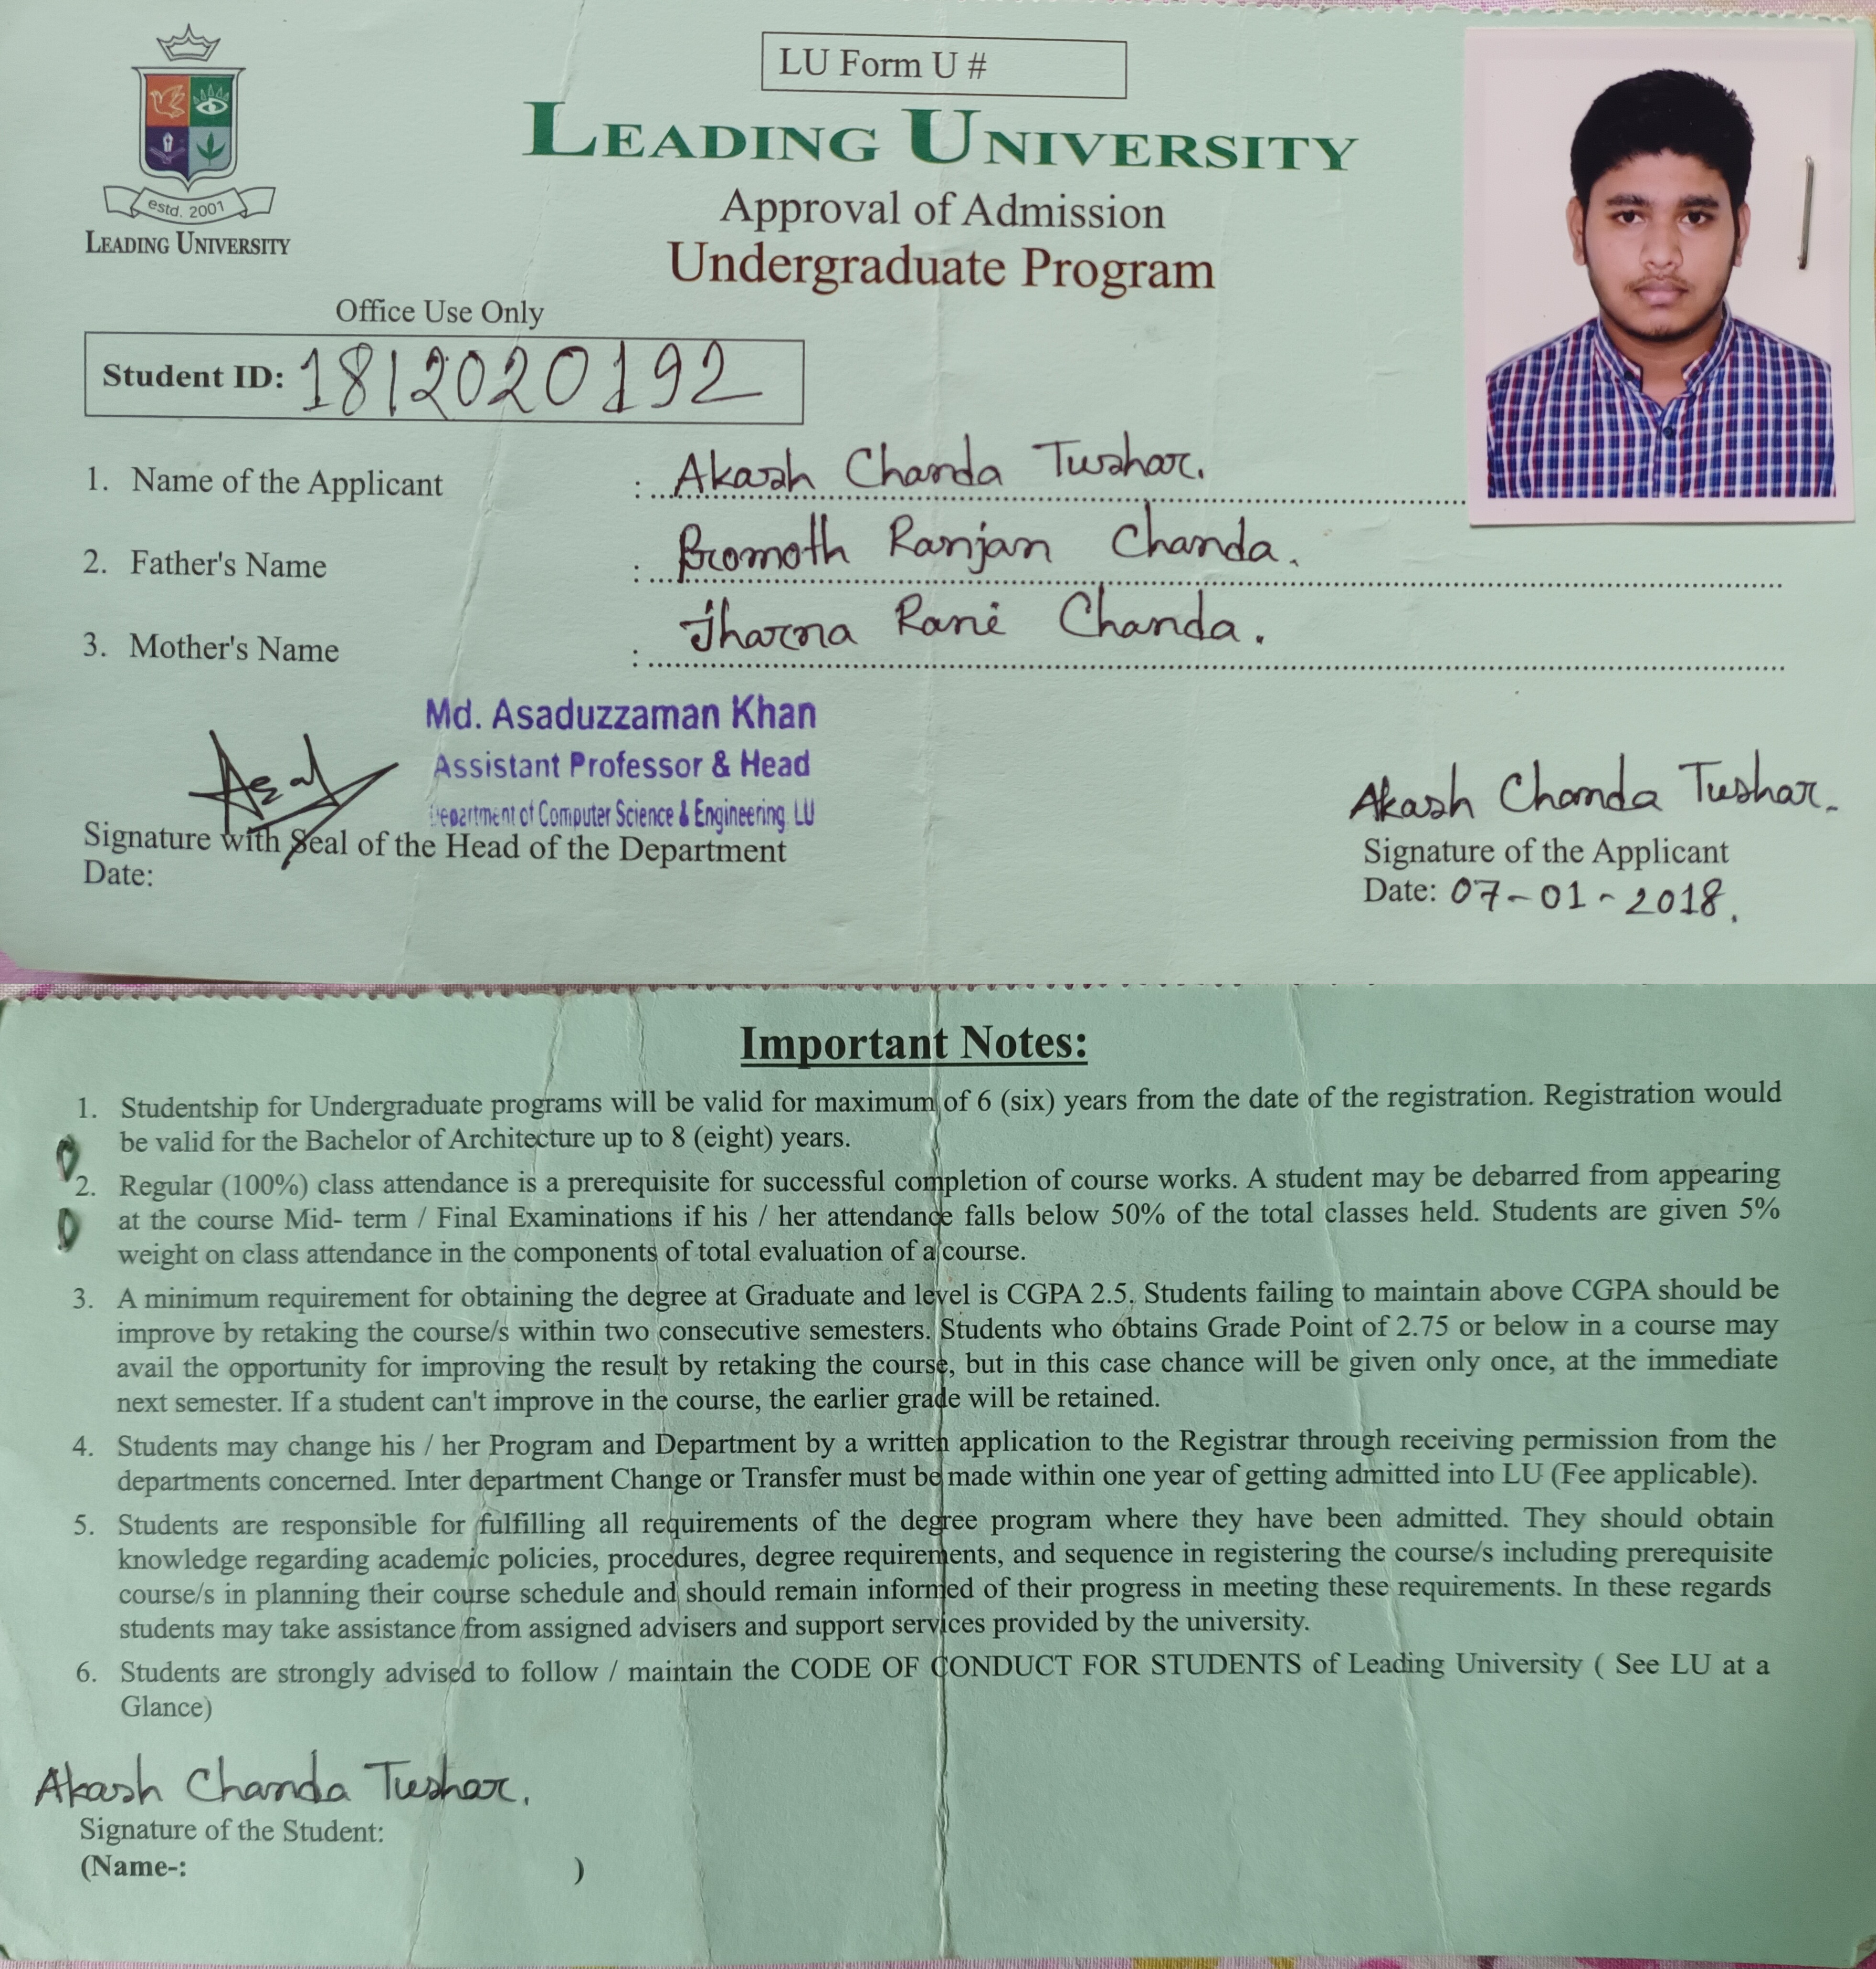 LU Form U #
LEADING UNIVERSITY
Approval of Admission
Undergraduate Program
estd. 2001
LEADING UNIVERSITY
Office Use Only
Student ID: 1812020192
1. Name of the Applicant : Akash Chanda Tushar.
2. Father's Name : Promoth Ranjan Chanda.
3. Mother's Name : Jharna Rani Chanda.
Md. Asaduzzaman Khan
Assistant Professor & Head
Department of Computer Science & Engineering, LU
Signature with Seal of the Head of the Department
Date:
Akash Chanda Tushar.
Signature of the Applicant
Date: 07-01-2018.
Important Notes:
1. Studentship for Undergraduate programs will be valid for maximum of 6 (six) years from the date of the registration. Registration would
be valid for the Bachelor of Architecture up to 8 (eight) years.
2. Regular (100%) class attendance is a prerequisite for successful completion of course works. A student may be debarred from appearing
at the course Mid- term / Final Examinations if his / her attendance falls below 50% of the total classes held. Students are given 5%
weight on class attendance in the components of total evaluation of a course.
3. A minimum requirement for obtaining the degree at Graduate and level is CGPA 2.5. Students failing to maintain above CGPA should be
improve by retaking the course/s within two consecutive semesters. Students who obtains Grade Point of 2.75 or below in a course may
avail the opportunity for improving the result by retaking the course, but in this case chance will be given only once, at the immediate
next semester. If a student can't improve in the course, the earlier grade will be retained.
4. Students may change his / her Program and Department by a written application to the Registrar through receiving permission from the
departments concerned. Inter department Change or Transfer must be made within one year of getting admitted into LU (Fee applicable).
5. Students are responsible for fulfilling all requirements of the degree program where they have been admitted. They should obtain
knowledge regarding academic policies, procedures, degree requirements, and sequence in registering the course/s including prerequisite
course/s in planning their course schedule and should remain informed of their progress in meeting these requirements. In these regards
students may take assistance from assigned advisers and support services provided by the university.
6. Students are strongly advised to follow / maintain the CODE OF CONDUCT FOR STUDENTS of Leading University ( See LU at a
Glance)
Akash Chanda Tushar.
Signature of the Student:
(Name-: )